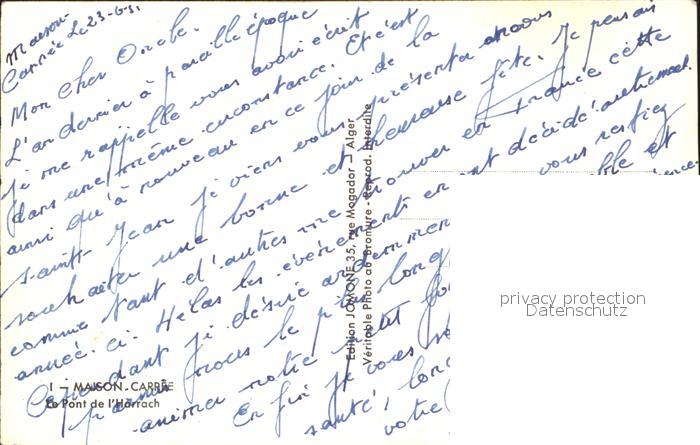 Maison-
Carrée Le 23-6-5.
Mon Cher Oncle.
L'an dernier à pareille époque
je me rappelle vous avoir écrit
dans une même circonstance. Et c'est
ainsi qu'à nouveau en ce jour de la
Saint-Jean je viens vous présenter et vous
souhaiter une bonne et heureuse fête. Je pensais
comme tant d'autres me trouver en France cette
année-ci. Hélas les événements en ont décidé autrement.
Cependant je désire ardemment vous restiez
parmi nous le plus long ble et
animer notre petit
En fin je vous
santé, 
votre
1 — MAISON-CARRÉE
Le Pont de l'Harrach
Edition JOMONE 35, rue Mogador — Alger
Véritable Photo au Bromure - Reprod. Interdite
privacy protection
Datenschutz